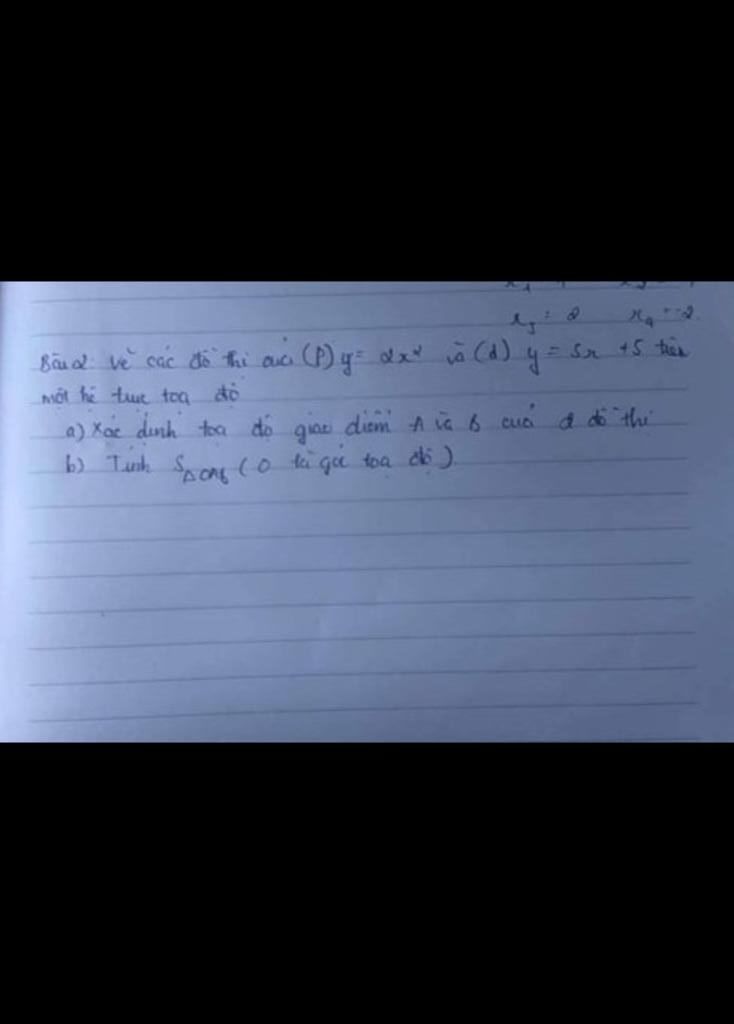 x₃ = 2 x₄ = -2
Bài 2: Vẽ các đồ thị của (P) y = 2x² và (d) y = 5x + 5 trên
một hệ trục toạ độ
a) Xác định toạ độ giao điểm A và B của 2 đồ thị
b) Tính S△OAB (O là gốc toạ độ)